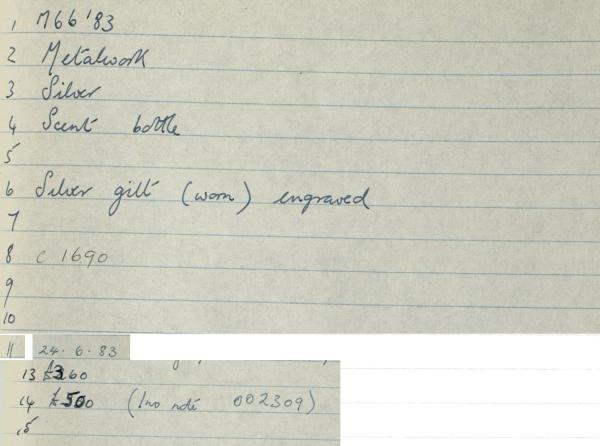 1 M66 '83
2 Metalwork
3 Silver
4 Scent bottle
5
6 Silver gilt (worn) engraved
7
8 c 1690
9
10
11 24.6.83
13 £360
14 £500 ( note 002309)
15